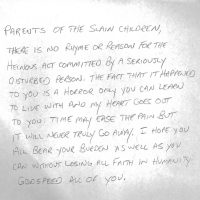 PARENTS OF THE SLAIN CHILDREN,
THERE IS NO RHYME OR REASON FOR THE
HEINOUS ACT COMMITTED BY A SERIOUSLY
DISTURBED PERSON. THE FACT THAT IT HAPPENED
TO YOU IS A HORROR ONLY YOU CAN LEARN
TO LIVE WITH AND MY HEART GOES OUT
TO YOU. TIME MAY EASE THE PAIN BUT
IT WILL NEVER TRULY GO AWAY. I HOPE YOU
ALL BEAR YOUR BURDEN AS WELL AS YOU
CAN WITHOUT LOSING ALL FAITH IN HUMANITY.
GODSPEED ALL OF YOU.